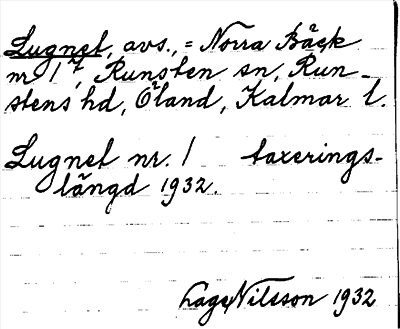 Lugnet, avs., = Norra Bäck
nr 1 7, Runsten sn, Run-
stens hd, Öland, Kalmar l.
Lugnet nr. 1 taxerings-
längd 1932.
Lage Nilsson 1932